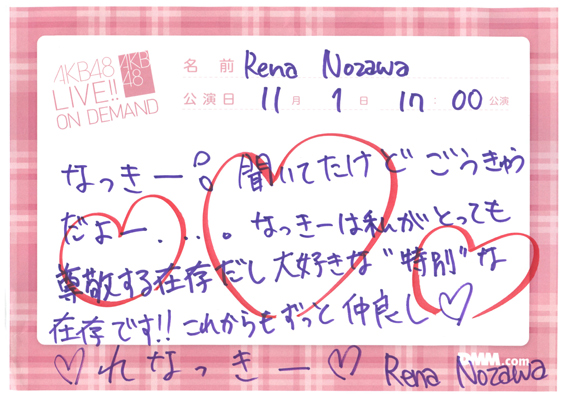 AKB48
LIVE!!
ON DEMAND
AKB
48
名前 Rena Nozawa
公演日 11月 1日 17:00 公演
なっきー 聞いてたけど ごうきゅう
だよー....。なっきーは私がとっても
尊敬する在存だし大好きな"特別"な
在存です!! これからもずっと仲良し♡
♡れなっきー♡ Rena Nozawa
DMM.com